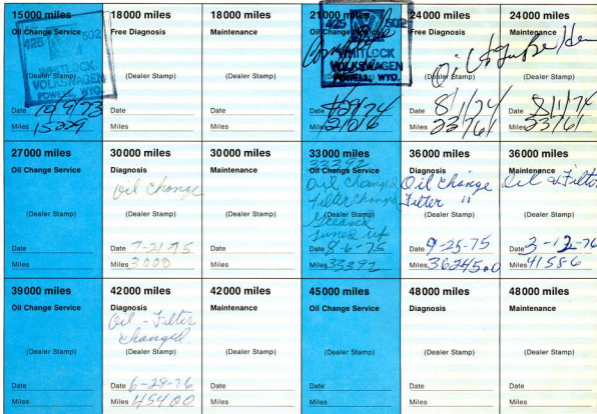 15000 miles
Oil Change Service
425 502
WHITLOCK
VOLKSWAGEN
POWELL, WYO.
(Dealer Stamp)
Date 10/9/73
Miles 15029
18000 miles
Free Diagnosis
(Dealer Stamp)
Date
Miles
18000 miles
Maintenance
(Dealer Stamp)
Date
Miles
21000 miles
Oil Change Service
425 502
WHITLOCK
VOLKSWAGEN
POWELL, WYO.
(Dealer Stamp)
Date
Miles
24000 miles
Free Diagnosis
Oil &
(Dealer Stamp)
Date 8/1/74
Miles 23761
24000 miles
Maintenance
(Dealer Stamp)
Date 8/1/74
Miles 23761
27000 miles
Oil Change Service
(Dealer Stamp)
Date
Miles
30000 miles
Diagnosis
Oil change
(Dealer Stamp)
Date 7-21-75
Miles 3000
30000 miles
Maintenance
(Dealer Stamp)
Date
Miles
33000 miles
33392
Oil Change Service
Oil changed
filter changed
(Dealer Stamp)
Greased
tuned up
Date 8-6-75
Miles 33392
36000 miles
Diagnosis
Oil change
Filter "
(Dealer Stamp)
Date 9-25-75
Miles 36245.0
36000 miles
Maintenance
Oil & Filter
(Dealer Stamp)
Date 3-12-76
Miles 41586
39000 miles
Oil Change Service
(Dealer Stamp)
Date
Miles
42000 miles
Diagnosis
Oil - Filter
changed
(Dealer Stamp)
Date 6-28-76
Miles 45400
42000 miles
Maintenance
(Dealer Stamp)
Date
Miles
45000 miles
Oil Change Service
(Dealer Stamp)
Date
Miles
48000 miles
Diagnosis
(Dealer Stamp)
Date
Miles
48000 miles
Maintenance
(Dealer Stamp)
Date
Miles